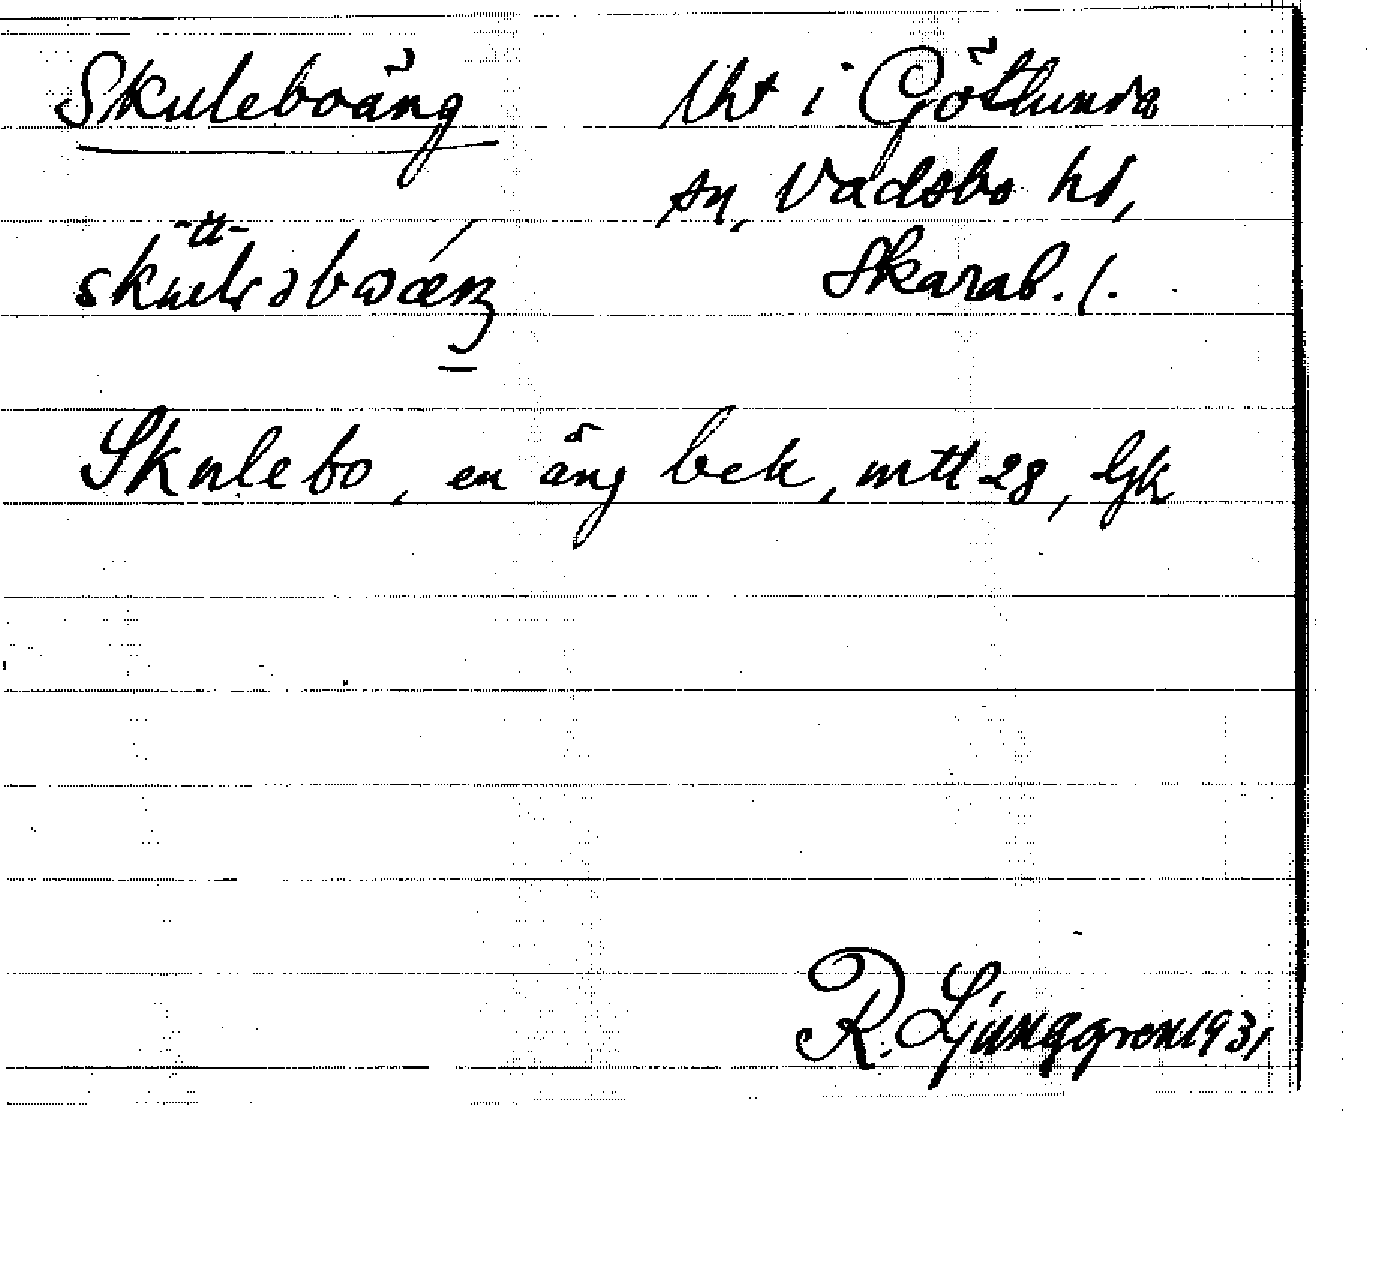 Skuleboäng Uht i Götlunda
sn, Vadsbo hd,
-ɯ-
Skarab. l.
Skulebo, en äng bek, mtt 28, Gk
R. Ljunggren 1931